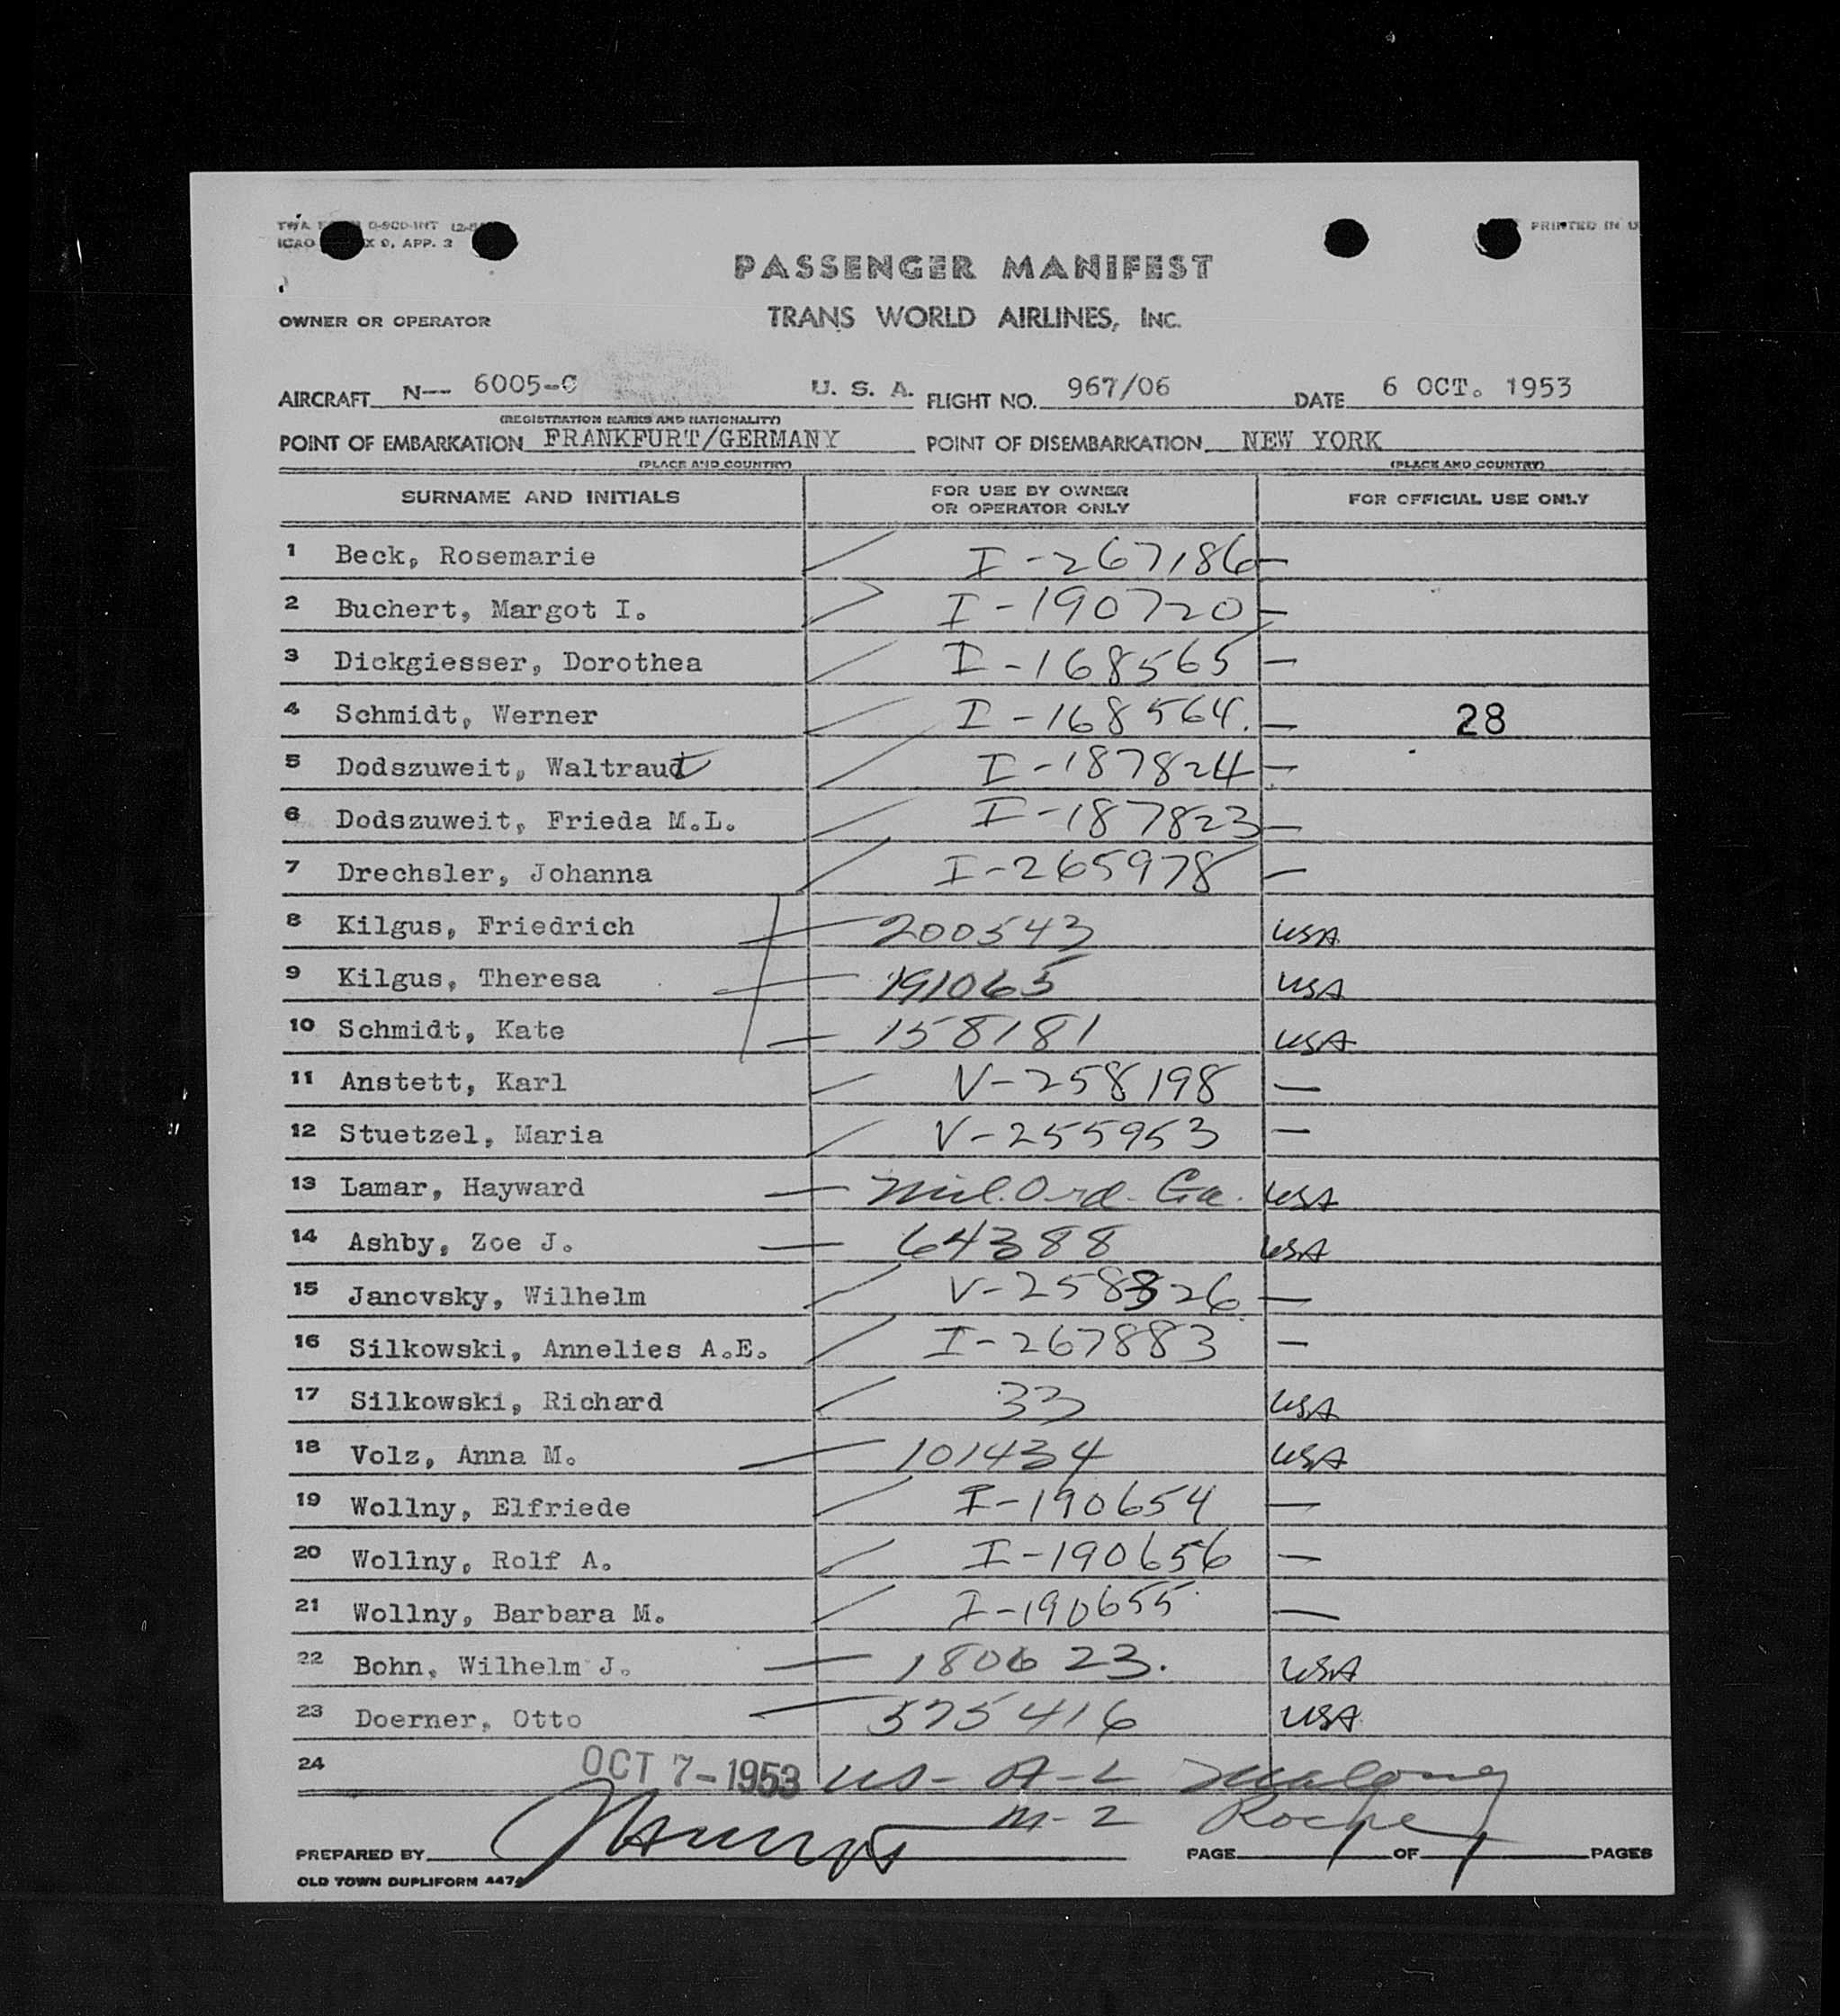 TWA F 0-900-INT 12-
ICAO X 9, APP. 2
PRINTED IN U
PASSENGER MANIFEST
OWNER OR OPERATOR TRANS WORLD AIRLINES, INC.
AIRCRAFT N-- 6005-C U. S. A. FLIGHT NO. 967/06 DATE 6 OCT. 1953
(REGISTRATION MARKS AND NATIONALITY)
POINT OF EMBARKATION FRANKFURT/GERMANY POINT OF DISEMBARKATION NEW YORK
(PLACE AND COUNTRY) (PLACE AND COUNTRY)
SURNAME AND INITIALS FOR USE BY OWNER OR OPERATOR ONLY FOR OFFICIAL USE ONLY
1 Beck, Rosemarie I-267186 —
2 Buchert, Margot I. I-190720 —
3 Dickgiesser, Dorothea I-168565 —
4 Schmidt, Werner I-168564. — 28
5 Dodszuweit, Waltraut I-187824 —
6 Dodszuweit, Frieda M.L. I-187823 —
7 Drechsler, Johanna I-265978 —
8 Kilgus, Friedrich 200543 USA
9 Kilgus, Theresa 191065 USA
10 Schmidt, Kate 158181 USA
11 Anstett, Karl V-258198 —
12 Stuetzel, Maria V-255953 —
13 Lamar, Hayward Mil. Ord. Ga. USA
14 Ashby, Zoe J. 64388 USA
15 Janovsky, Wilhelm V-258326 —
16 Silkowski, Annelies A.E. I-267883 —
17 Silkowski, Richard 33 USA
18 Volz, Anna M. 101434 USA
19 Wollny, Elfriede I-190654 —
20 Wollny, Rolf A. I-190656 —
21 Wollny, Barbara M. I-190655 —
22 Bohn, Wilhelm J. 180623. USA
23 Doerner, Otto 575416 USA
24 OCT 7-1953 US- A-L Malony
M-2 Roche
PREPARED BY PAGE 1 OF 1 PAGES
OLD TOWN DUPLIFORM 447